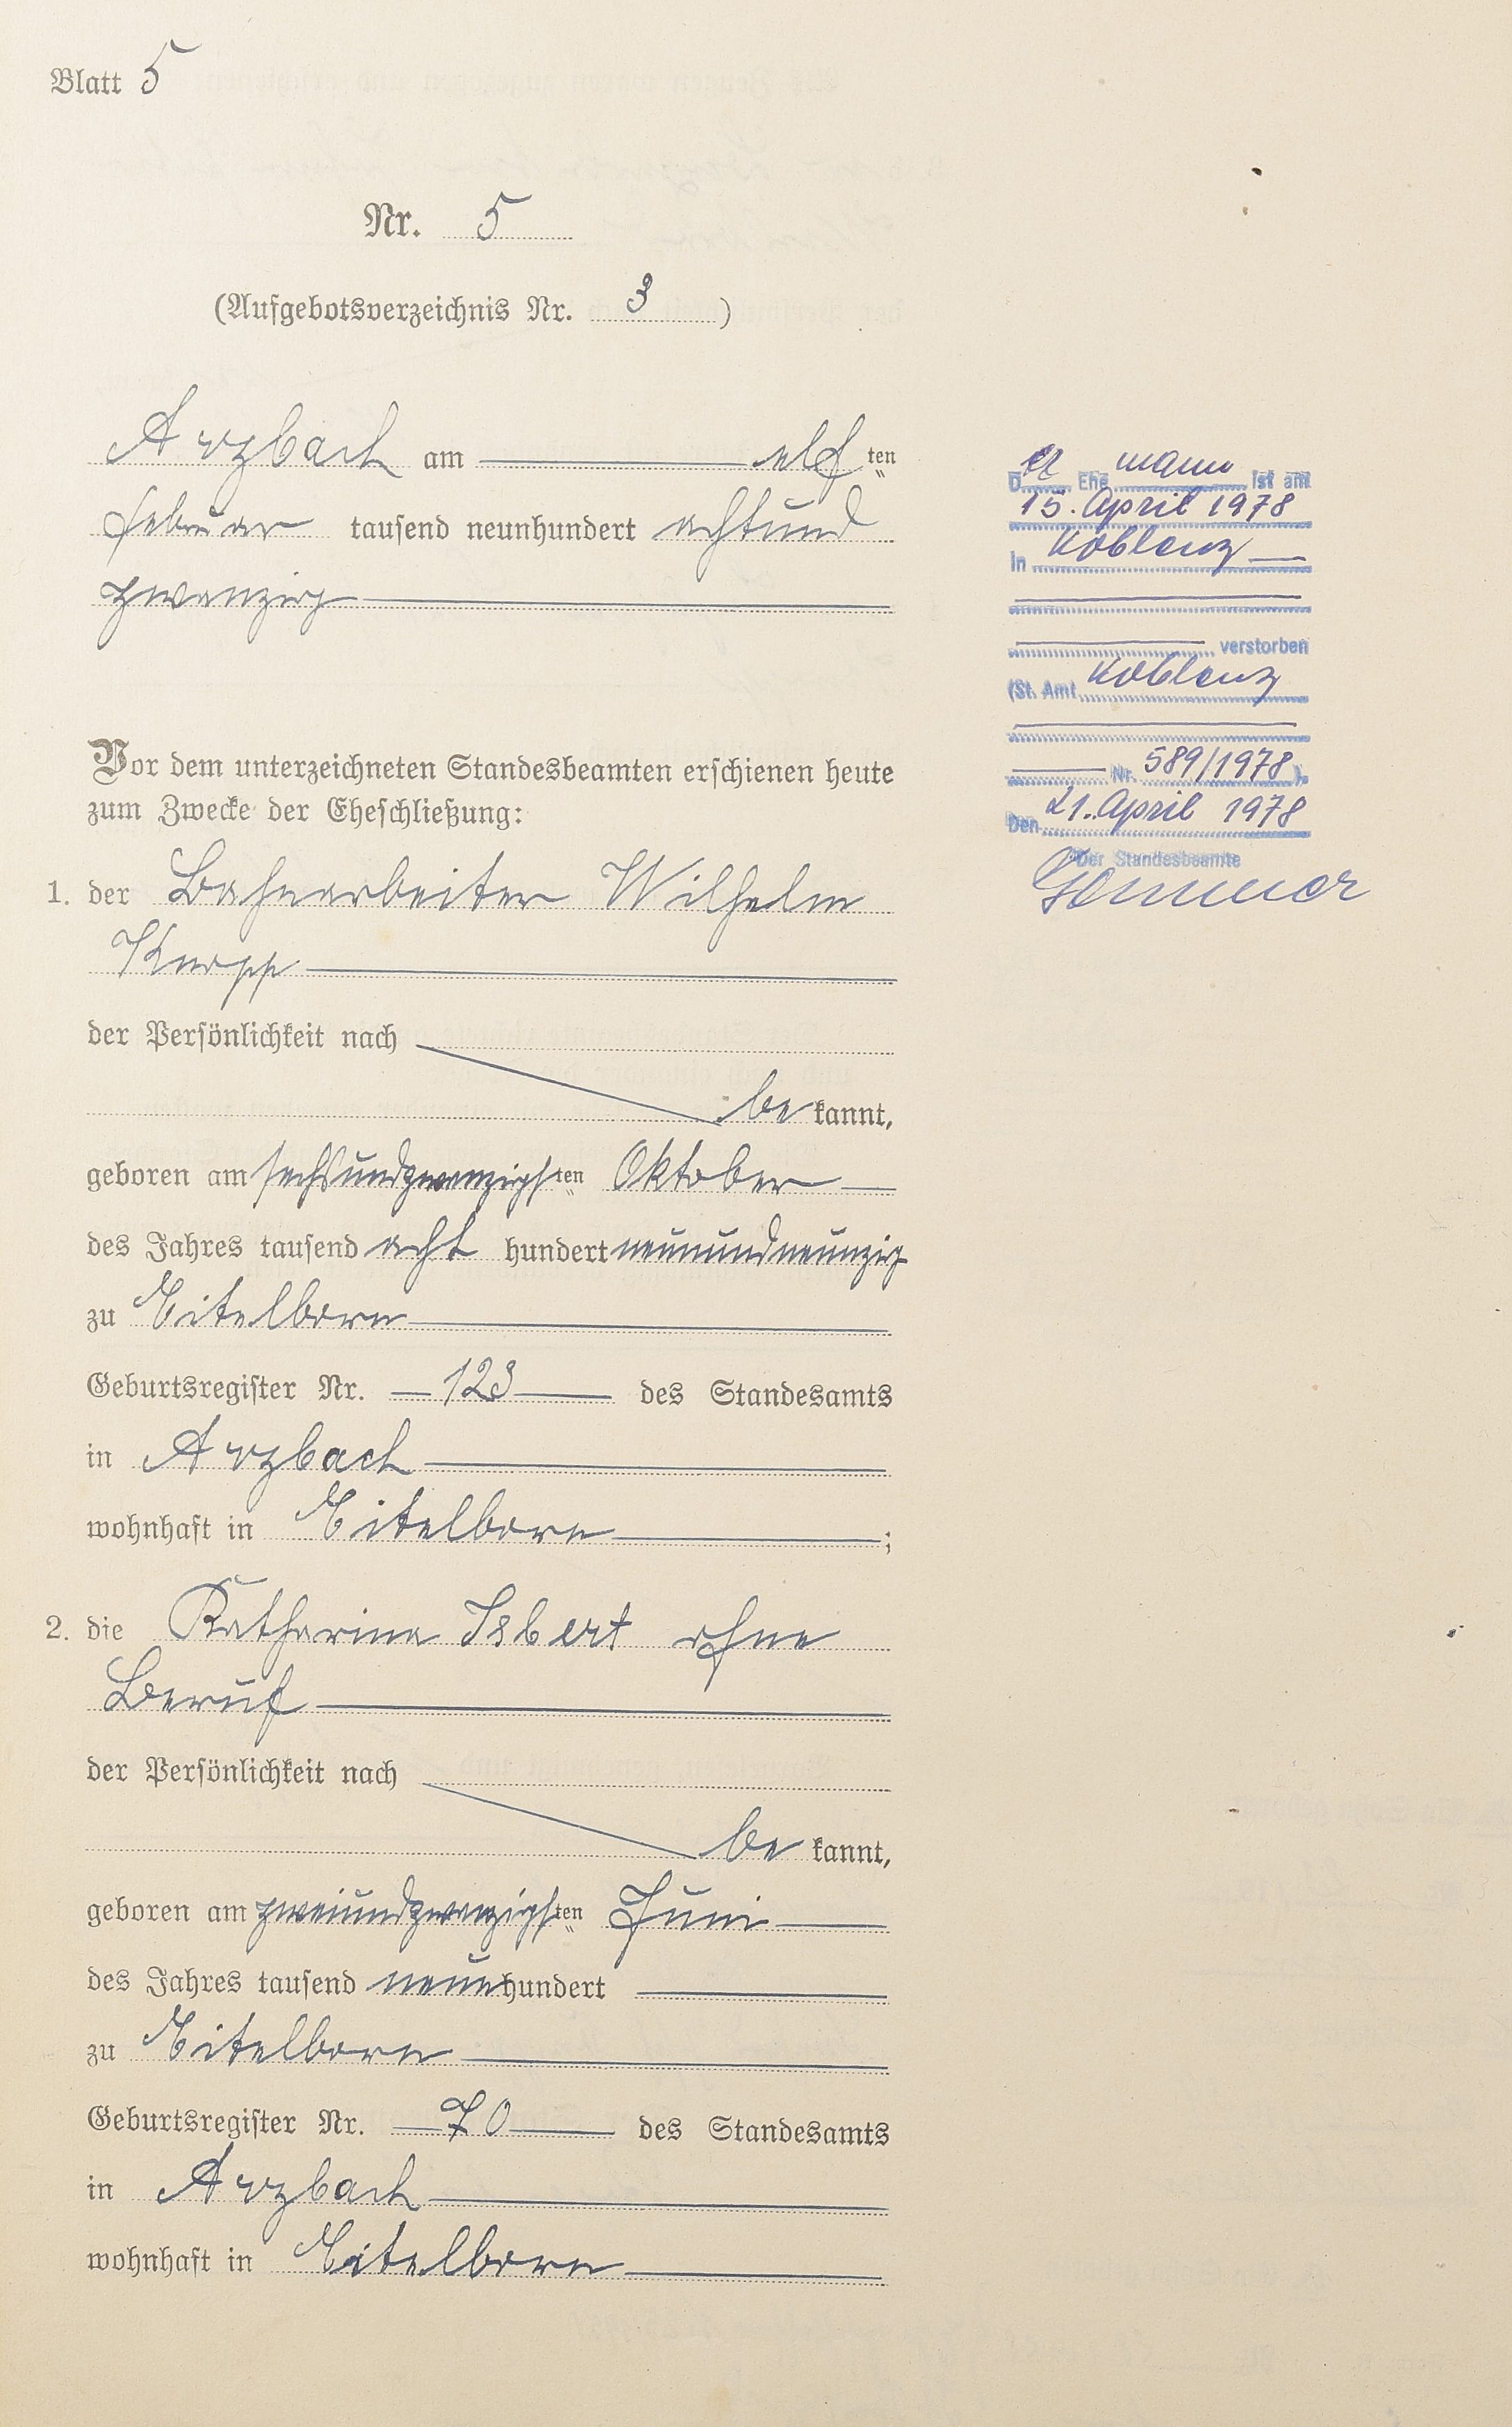 Blatt 5
Nr. 5
(Aufgebotsverzeichnis Nr. 3)
Arzbach am elf ten
Februar tausend neunhundert achtund
zwanzig
Vor dem unterzeichneten Standesbeamten erschienen heute
zum Zwecke der Eheschließung:
1. der Bahnarbeiter Wilhelm
Knopp
der Persönlichkeit nach
be kannt,
geboren am sechsundzwanzigsten Oktober
des Jahres tausend acht hundert neunundneunzig
zu Eitelborn
Geburtsregister Nr. 123 des Standesamts
in Arzbach
wohnhaft in Eitelborn;
2. die Katharina Isbert ohne
Beruf
der Persönlichkeit nach
be kannt,
geboren am zweiundzwanzigsten Juni
des Jahres tausend neunhundert
zu Eitelborn
Geburtsregister Nr. 70 des Standesamts
in Arzbach
wohnhaft in Eitelborn
Der Ehemann ist am
15. April 1978
in Koblenz
verstorben
(St. Amt Koblenz
Nr. 589/1978).
Den 21. April 1978
Der Standesbeamte